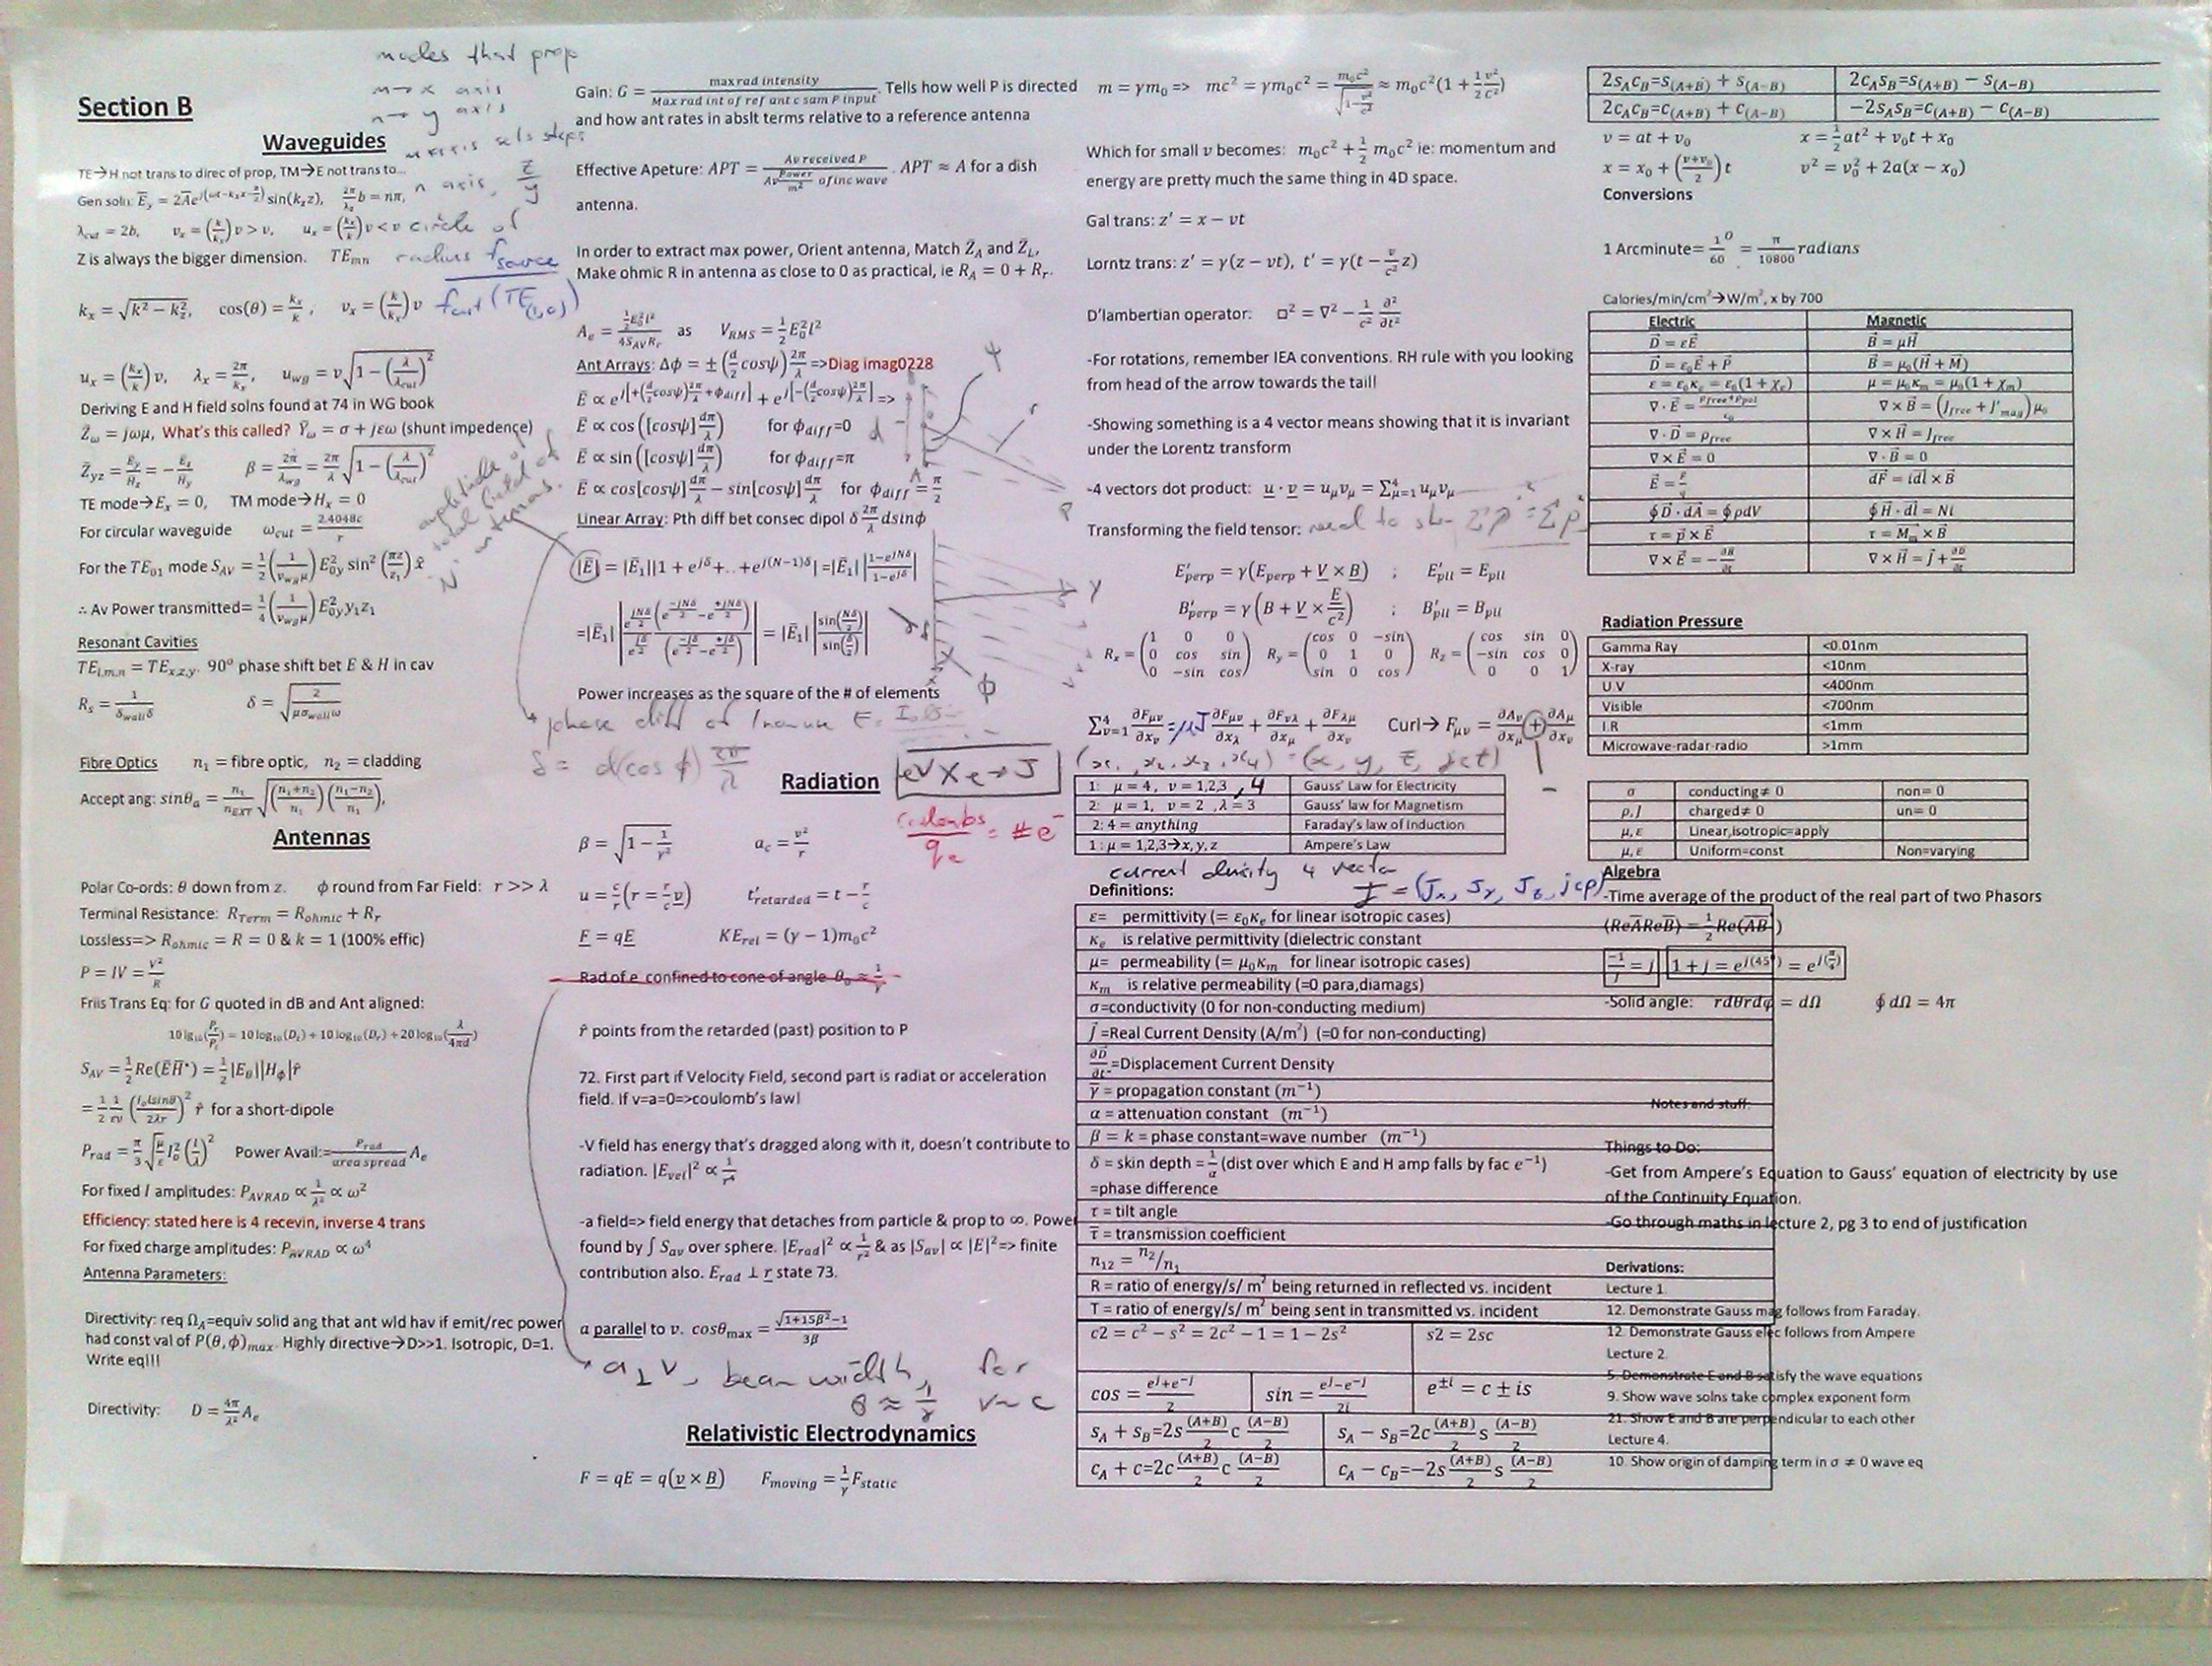 modes that prop
m→ x axis
n→ y axis
Section B
Waveguides
TE→H not trans to direc of prop, TM→E not trans to...
n axis, z/y
Gen soln: E̅_y = 2A̅e^{j(ωt−k_x x−π/2)} sin(k_z z), (2π/λ_z)b = nπ,
λ_cut = 2b, v_x = (k/k_x)v > v, u_x = (k_x/k)v < v circle of
Z is always the bigger dimension. TE_mn radius f_source
k_x = √(k² − k_z²), cos(θ) = k_x/k, v_x = (k/k_x)v f_cut (TE_(1,0))
u_x = (k_x/k)v, λ_x = 2π/k_x, u_wg = v√(1 − (λ/λ_cut)²)
Deriving E and H field solns found at 74 in WG book
Z̅_ω = jωμ, What's this called? Y̅_ω = σ + jεω (shunt impedence)
Z̅_yz = E_y/H_z = −E_z/H_y β = 2π/λ_wg = (2π/λ)√(1 − (λ/λ_cut)²)
TE mode→E_x = 0, TM mode→H_x = 0
For circular waveguide ω_cut = 2.4048c/r
For the TE_01 mode S_AV = ½(1/(v_wg μ))E²_0y sin²(πz/z_1) x̂
∴ Av Power transmitted= ¼(1/(v_wg μ))E²_0y y_1z_1
Resonant Cavities
TE_l,m,n = TE_x,z,y. 90° phase shift bet E & H in cav
R_s = 1/(δ_wall δ) δ = √(2/(μσ_wall ω))
Fibre Optics n_1 = fibre optic, n_2 = cladding
Accept ang: sinθ_a = (n_1/n_EXT)√(((n_1+n_2)/n_1)((n_1−n_2)/n_1)),
Antennas
Polar Co-ords: θ down from z. ϕ round from Far Field: r >> λ
Terminal Resistance: R_Term = R_ohmic + R_r
Lossless=> R_ohmic = R = 0 & k = 1 (100% effic)
P = IV = V²/R
Friis Trans Eq: for G quoted in dB and Ant aligned:
10 lg_10(P_r/P_t) = 10 log_10(D_t) + 10 log_10(D_r) + 20 log_10(λ/4πd)
S_AV = ½Re(E̅H̅*) = ½|E_θ||H_ϕ|r̂
= ½ (1/εv)(I_0 l sinθ/2λr)² r̂ for a short-dipole
P_rad = (π/3)√(μ/ε) I_0²(l/λ)² Power Avail:= (P_rad/area spread) A_e
For fixed I amplitudes: P_AVRAD ∝ 1/λ² ∝ ω²
Efficiency: stated here is 4 recevin, inverse 4 trans
For fixed charge amplitudes: P_AVRAD ∝ ω⁴
Antenna Parameters:
Directivity: req Ω_A=equiv solid ang that ant wld hav if emit/rec power
had const val of P(θ, ϕ)_max. Highly directive→D>>1. Isotropic, D=1.
Write eq!!!
Directivity: D = (4π/λ²)A_e
Gain: G = max rad intensity / Max rad int of ref ant c sam P input. Tells how well P is directed
and how ant rates in abslt terms relative to a reference antenna
Effective Apeture: APT = Av received P / (Av Power/m² of inc wave). APT ≈ A for a dish
antenna.
In order to extract max power, Orient antenna, Match Z̅_A and Z̅_L,
Make ohmic R in antenna as close to 0 as practical, ie R_A = 0 + R_r.
A_e = ½E_0²l²/(4S_AV R_r) as V_RMS = ½E_0²l²
Ant Arrays: Δϕ = ±((d/2)cosψ)(2π/λ) =>Diag imag0228
E̅ ∝ e^{j[+((d/2)cosψ)(2π/λ)+ϕ_diff]} + e^{j[−((d/2)cosψ)(2π/λ)]} =>
E̅ ∝ cos([cosψ](dπ/λ)) for ϕ_diff=0
E̅ ∝ sin([cosψ](dπ/λ)) for ϕ_diff=π
E̅ ∝ cos[cosψ](dπ/λ) − sin[cosψ](dπ/λ) for ϕ_diff = π/2
ψ
r
d
P
amplitude of
total field of
N antennas.
Linear Array: Pth diff bet consec dipol δ (2π/λ) dsinϕ
|E̅| = |E̅_1||1 + e^{jδ}+..+e^{j(N−1)δ}| = |E̅_1| |(1−e^{jNδ})/(1−e^{jδ})|
=|E̅_1| |(e^{jNδ/2}(e^{−jNδ/2}−e^{+jNδ/2}))/(e^{jδ/2}(e^{−jδ/2}−e^{+jδ/2}))| = |E̅_1| |sin(Nδ/2)/sin(δ/2)|
Y
ϕ
Power increases as the square of the # of elements
phase diff
δ = d(cos ϕ) 2π/λ
Radiation
eV × e → J
β = √(1 − 1/γ²) a_c = v²/r
Coulombs/q_e = # e⁻
u = (c/r)(r = (r/c)v) t'_retarded = t − r/c
F = qE KE_rel = (γ − 1)m_0c²
Rad of e confined to cone of angle θ_0 ≈ 1/γ
r̂ points from the retarded (past) position to P
72. First part if Velocity Field, second part is radiat or acceleration
field. If v=a=0=>coulomb's law!
-V field has energy that's dragged along with it, doesn't contribute to
radiation. |E_vel|² ∝ 1/r⁴
-a field=> field energy that detaches from particle & prop to ∞. Power
found by ∫ S_av over sphere. |E_rad|² ∝ 1/r² & as |S_av| ∝ |E|²=> finite
contribution also. E_rad ⊥ r state 73.
a parallel to v. cosθ_max = (√(1+15β²)−1)/3β
a ⊥ v, beam width, for
θ ≈ 1/γ v ~ c
Relativistic Electrodynamics
F = qE = q(v × B) F_moving = (1/γ)F_static
m = γm_0 => mc² = γm_0c² = m_0c²/√(1−v²/c²) ≈ m_0c²(1 + ½ v²/c²)
Which for small v becomes: m_0c² + ½ m_0c² ie: momentum and
energy are pretty much the same thing in 4D space.
Gal trans: z' = x − vt
Lorntz trans: z' = γ(z − vt), t' = γ(t − (v/c²)z)
D'lambertian operator: □² = ∇² − (1/c²) ∂²/∂t²
-For rotations, remember IEA conventions. RH rule with you looking
from head of the arrow towards the taill
-Showing something is a 4 vector means showing that it is invariant
under the Lorentz transform
-4 vectors dot product: u · v = u_μv_μ = Σ⁴_μ=1 u_μv_μ
Transforming the field tensor: need to
E'_perp = γ(E_perp + V × B) ; E'_pll = E_pll
B'_perp = γ(B + V × E/c²) ; B'_pll = B_pll
R_x = (1 0 0; 0 cos sin; 0 −sin cos) R_y = (cos 0 −sin; 0 1 0; sin 0 cos) R_z = (cos sin 0; −sin cos 0; 0 0 1)
Σ⁴_ν=1 ∂F_μν/∂x_ν = μJ ∂F_μν/∂x_λ + ∂F_νλ/∂x_μ + ∂F_λμ/∂x_ν Curl→ F_μν = ∂A_ν/∂x_μ + ∂A_μ/∂x_ν
−
(x_1, x_2, x_3, x_4) = (x, y, z, jct)
1: μ = 4, ν = 1,2,3 ,4 Gauss' Law for Electricity
2: μ = 1, ν = 2 ,λ = 3 Gauss' law for Magnetism
2: 4 = anything Faraday's law of Induction
1: μ = 1,2,3→x, y, z Ampere's Law
current density 4 vector
J = (J_x, J_y, J_z, jcρ)
Definitions:
ε= permittivity (= ε_0κ_e for linear isotropic cases)
κ_e is relative permittivity (dielectric constant
μ= permeability (= μ_0κ_m for linear isotropic cases)
κ_m is relative permeability (=0 para,diamags)
σ=conductivity (0 for non-conducting medium)
J⃗ =Real Current Density (A/m²) (=0 for non-conducting)
∂D⃗/∂t =Displacement Current Density
γ̅ = propagation constant (m⁻¹)
α = attenuation constant (m⁻¹)
β = k = phase constant=wave number (m⁻¹)
δ = skin depth = 1/α (dist over which E and H amp falls by fac e⁻¹)
=phase difference
τ = tilt angle
τ̅ = transmission coefficient
n_12 = n_2/n_1
R = ratio of energy/s/ m² being returned in reflected vs. incident
T = ratio of energy/s/ m² being sent in transmitted vs. incident
c2 = c² − s² = 2c² − 1 = 1 − 2s² s2 = 2sc
cos = (e^j+e^−j)/2 sin = (e^j−e^−j)/2i e^±i = c ± is
s_A + s_B=2s (A+B)/2 c (A−B)/2 s_A − s_B=2c (A+B)/2 s (A−B)/2
c_A + c=2c (A+B)/2 c (A−B)/2 c_A − c_B=−2s (A+B)/2 s (A−B)/2
2s_Ac_B=s_(A+B) + s_(A−B) 2c_As_B=s_(A+B) − s_(A−B)
2c_Ac_B=c_(A+B) + c_(A−B) −2s_As_B=c_(A+B) − c_(A−B)
v = at + v_0 x = ½at² + v_0t + x_0
x = x_0 + ((v+v_0)/2)t v² = v_0² + 2a(x − x_0)
Conversions
1 Arcminute= 1/60 ° = π/10800 radians
Calories/min/cm²→W/m², x by 700
Electric Magnetic
D⃗ = εE⃗ B⃗ = μH⃗
D⃗ = ε_0E⃗ + P⃗ B⃗ = μ_0(H⃗ + M⃗)
ε = ε_0κ_e = ε_0(1 + χ_e) μ = μ_0κ_m = μ_0(1 + χ_m)
∇ · E⃗ = (ρ_free+ρ_pol)/ε_0 ∇ × B⃗ = (J_free + J'_mag)μ_0
∇ · D⃗ = ρ_free ∇ × H⃗ = J_free
∇ × E⃗ = 0 ∇ · B⃗ = 0
E⃗ = F/q dF⃗ = idl⃗ × B⃗
∮ D⃗ · dA⃗ = ∮ ρdV ∮ H⃗ · dl⃗ = Ni
τ = p⃗ × E⃗ τ = M⃗_m × B⃗
∇ × E⃗ = −∂B/∂t ∇ × H⃗ = J⃗ + ∂D/∂t
Radiation Pressure
Gamma Ray <0.01nm
X-ray <10nm
U.V <400nm
Visible <700nm
I.R <1mm
Microwave-radar-radio >1mm
σ conducting≠ 0 non= 0
ρ, J charged≠ 0 un= 0
μ, ε Linear,isotropic=apply
μ, ε Uniform=const Non=varying
Algebra
-Time average of the product of the real part of two Phasors
(ReA̅ReB̅) = ½Re(A̅B̅*)
−1/j = j 1 + j = e^{j(45°)} = e^{j(π/4)}
-Solid angle: rdθrdφ = dΩ ∮ dΩ = 4π
Notes and stuff:
Things to Do:
-Get from Ampere's Equation to Gauss' equation of electricity by use
of the Continuity Equation.
-Go through maths in lecture 2, pg 3 to end of justification
Derivations:
Lecture 1
12. Demonstrate Gauss mag follows from Faraday.
12. Demonstrate Gauss elec follows from Ampere
Lecture 2.
5. Demonstrate E and B satisfy the wave equations
9. Show wave solns take complex exponent form
21. Show E and B are perpendicular to each other
Lecture 4.
10. Show origin of damping term in σ ≠ 0 wave eq